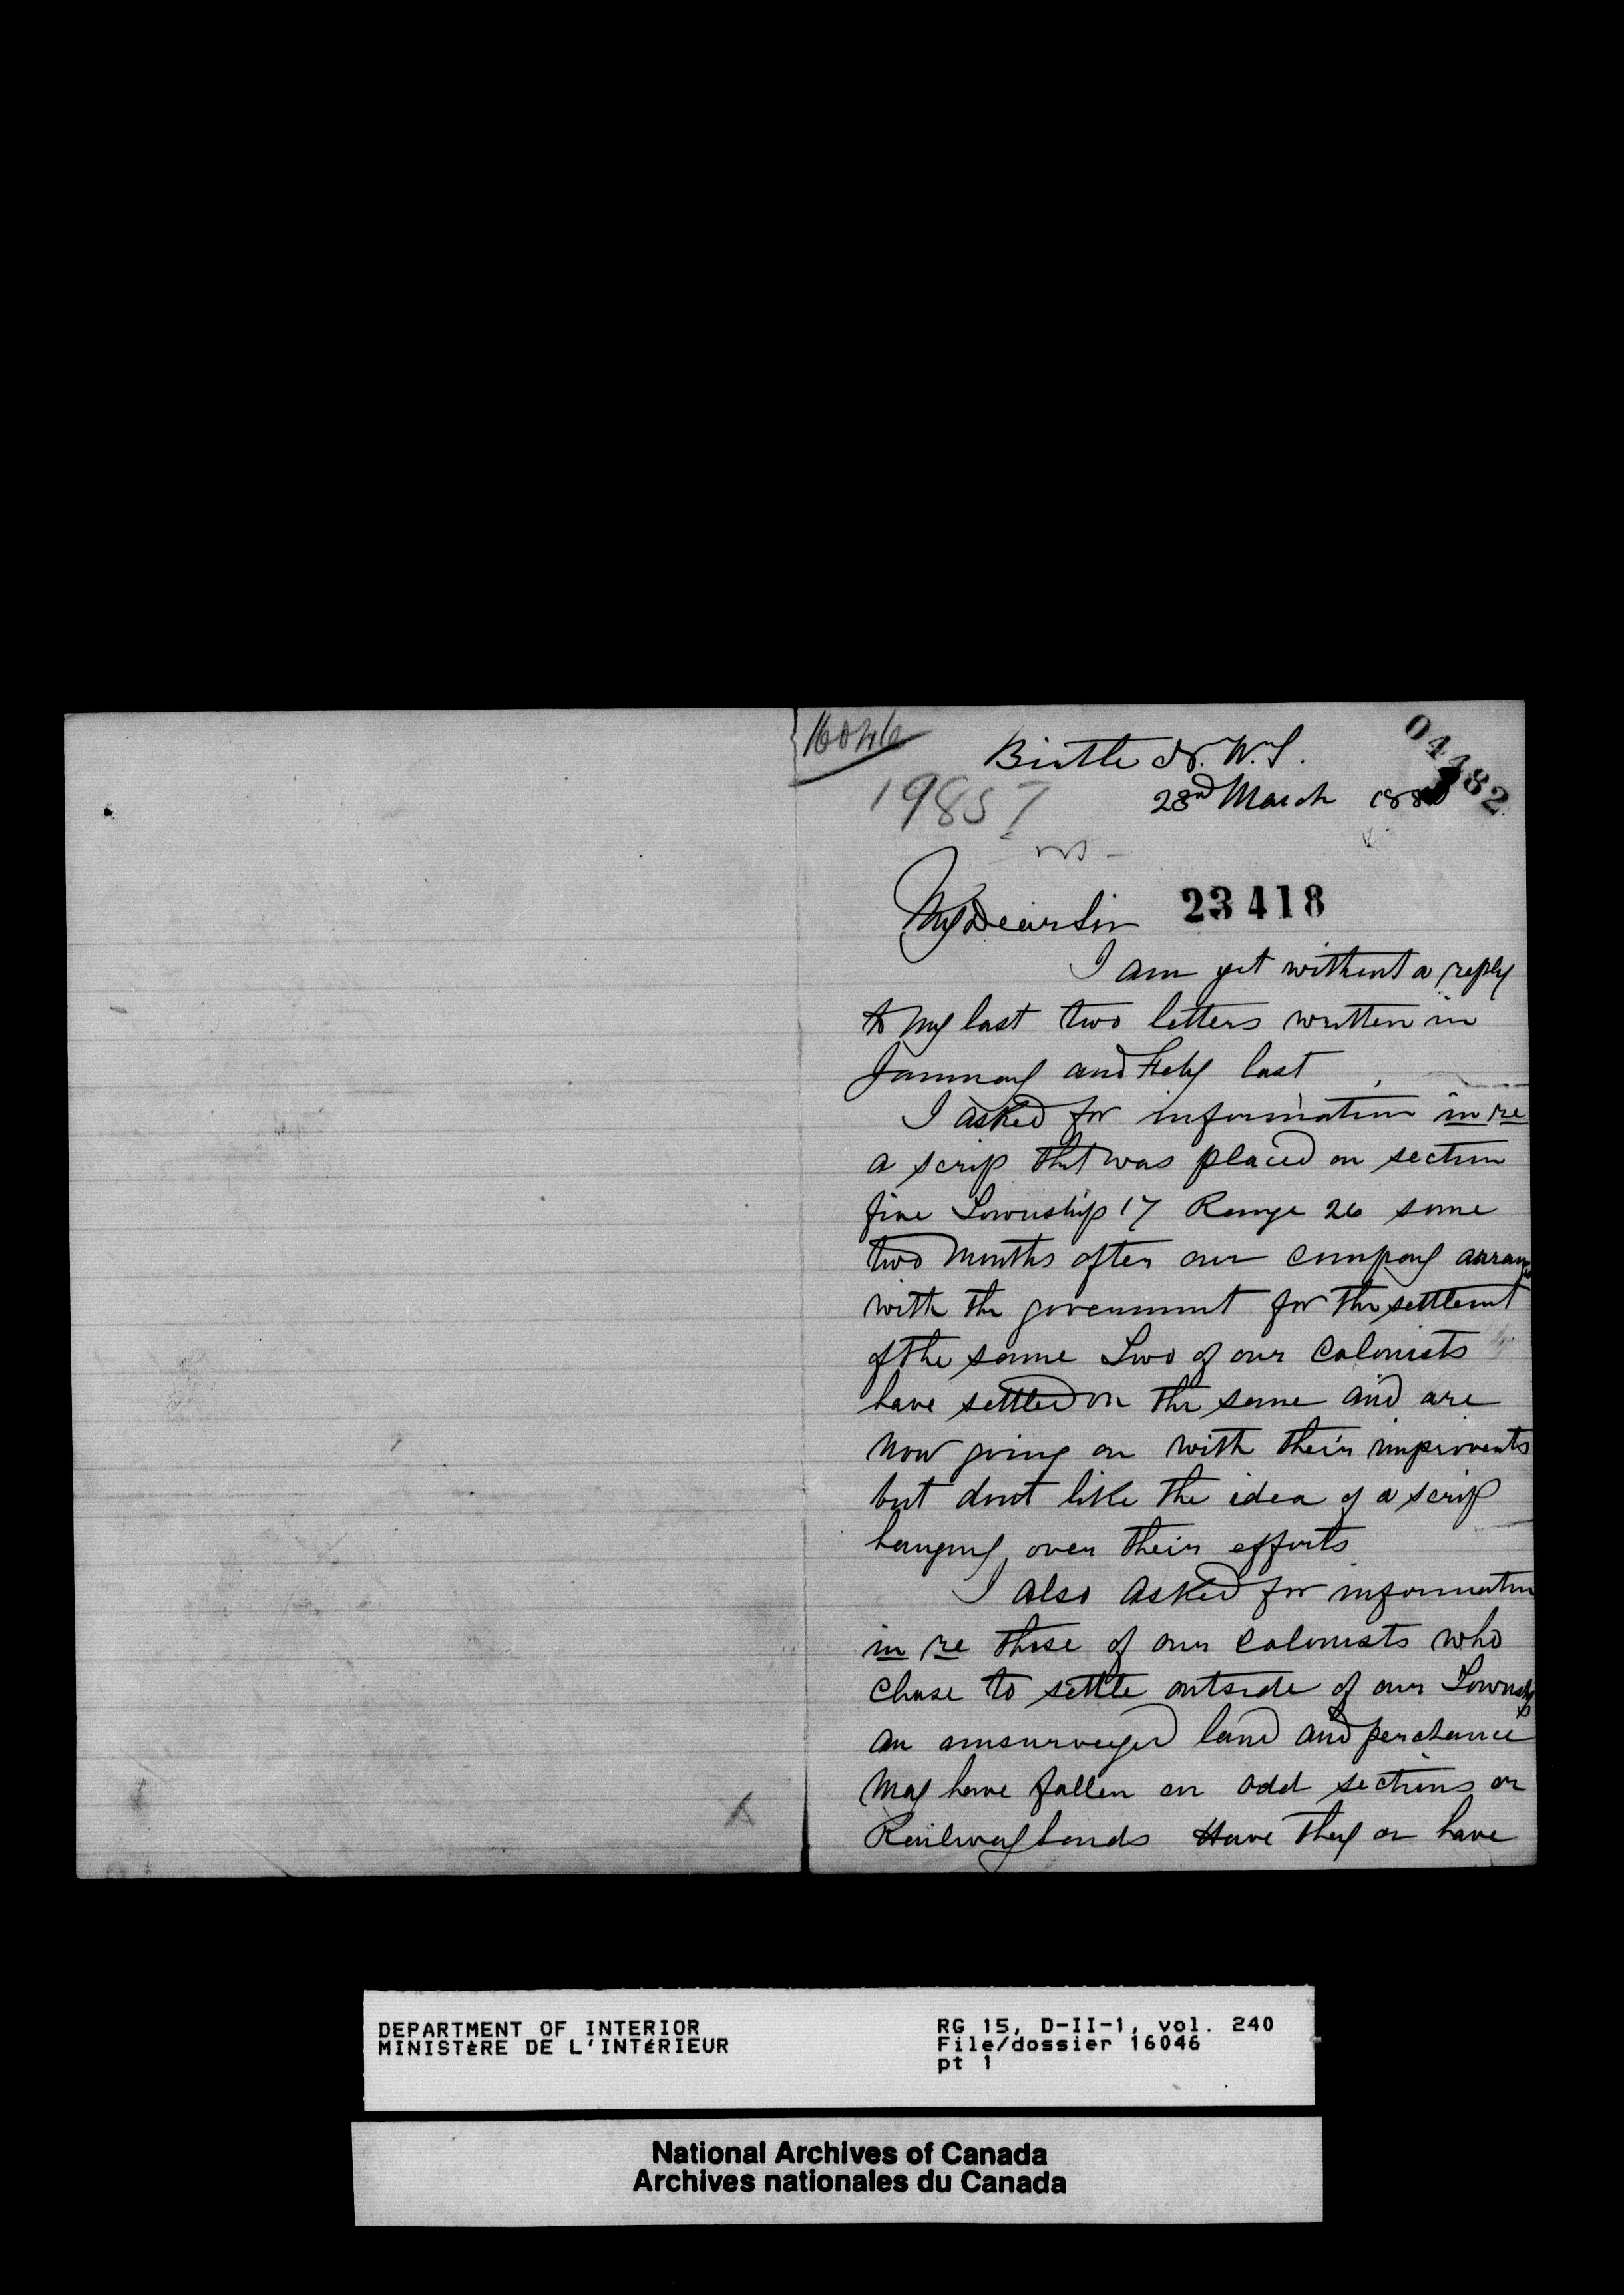 16046
Birtle N.W.T.
04482
19857
23rd March 1880
My Dear Sir
23418
I am yet without a reply
to my last two letters written in
January and Feby last
I asked for information in re
a scrip that was placed on section
five Township 17 Range 26 some
two months after our company
with the government for the settlemt
of the same Two of our Colonists
have settled on the same and are
now going on with their improvents
but dont like the idea of a scrip
hanging over their efforts
I also asked for information
in re those of our Colonists who
chose to settle outside of our Township
on unsurveyed land and perchance
may have fallen on odd sections or
Railway lands Have they or have
DEPARTMENT OF INTERIOR
MINISTÈRE DE L'INTÉRIEUR
RG 15, D-II-1, vol. 240
File/dossier 16046
pt 1
National Archives of Canada
Archives nationales du Canada